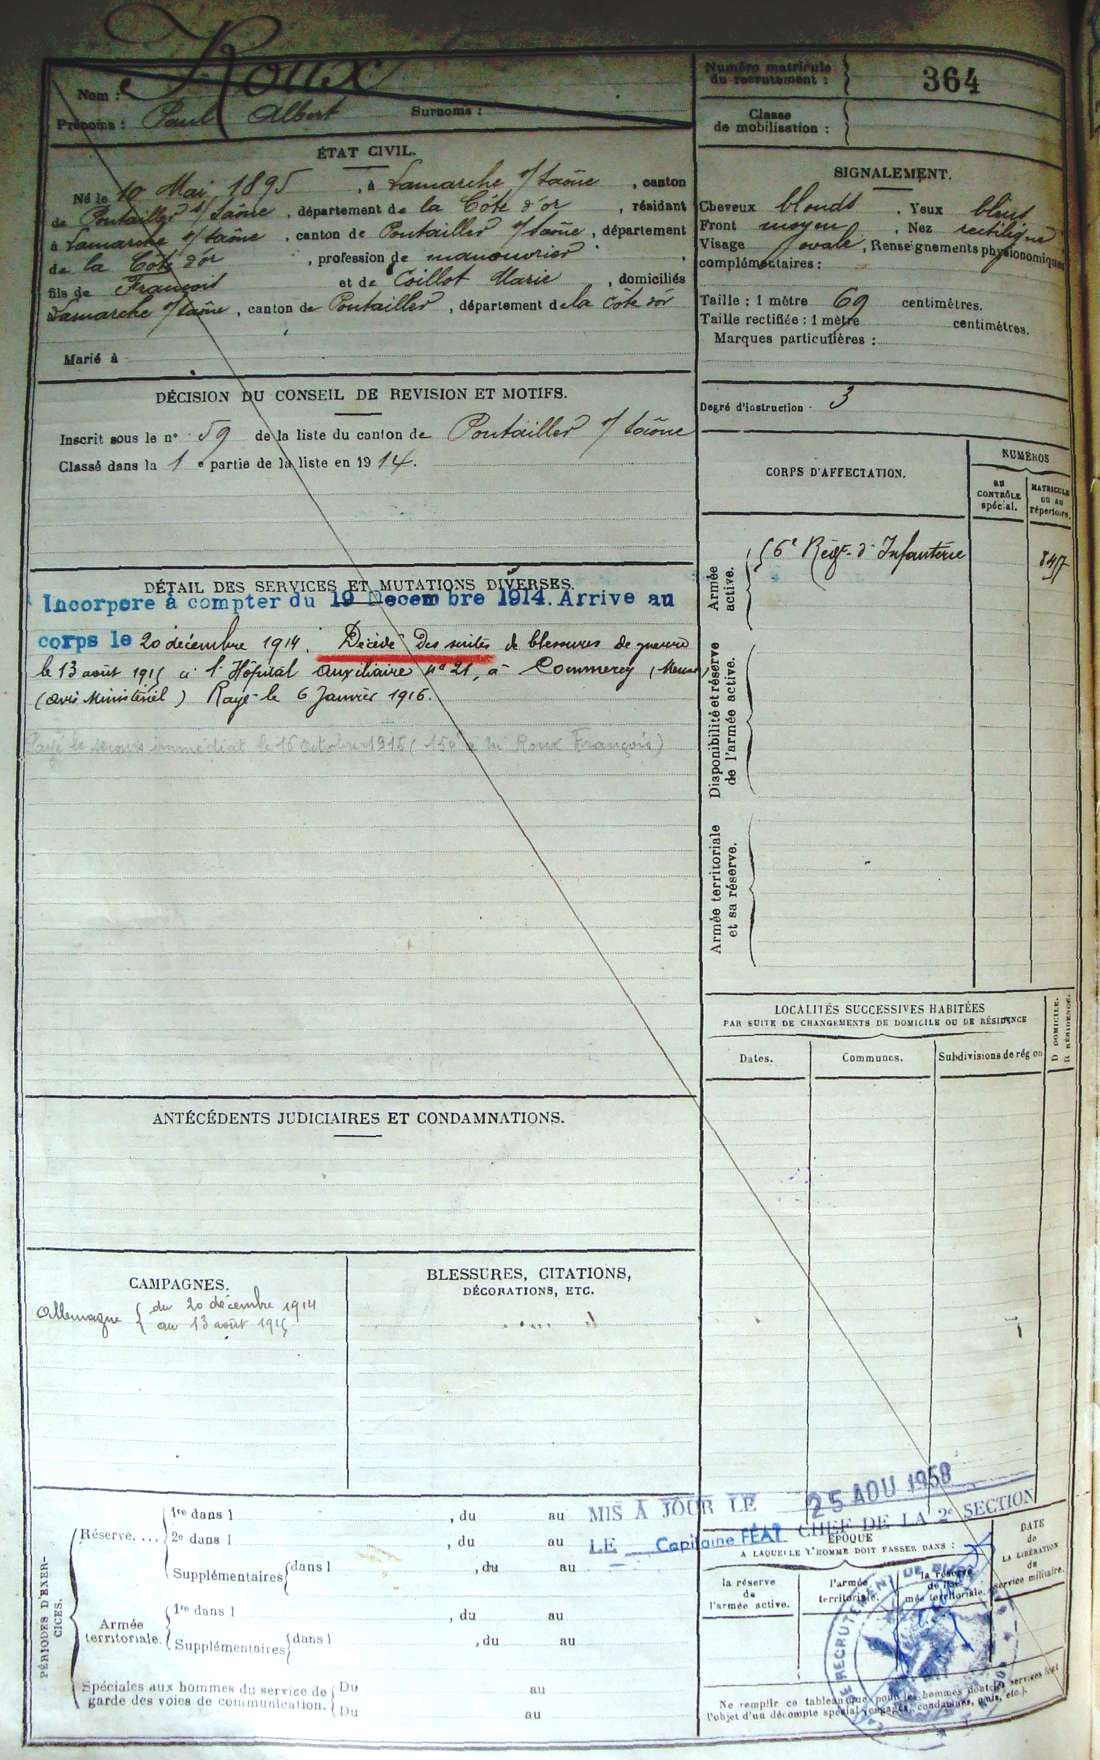 Nom : Roux
Prénoms : Paul Albert Surnoms :
Numéro matricule du recrutement : 364
Classe de mobilisation :
ÉTAT CIVIL.
Né le 10 Mai 1895, à Lamarche s/Saône, canton
de Pontailler s/Saône, département de la Côte d'or, résidant
à Lamarche s/Saône, canton de Pontailler s/Saône, département
de la Côte d'or, profession de manouvrier
fils de François et de Coillot Marie, domiciliés
Lamarche s/Saône, canton de Pontailler, département de la Côte d'or
Marié à
SIGNALEMENT.
Cheveux blonds. Yeux bleus
Front moyen, Nez rectiligne
Visage ovale, Renseignements physionomiques
complémentaires :
Taille : 1 mètre 69 centimètres.
Taille rectifiée : 1 mètre centimètres.
Marques particulières :
Degré d'instruction 3
DÉCISION DU CONSEIL DE REVISION ET MOTIFS.
Inscrit sous le n° 59 de la liste du canton de Pontailler s/Saône
Classé dans la 1e partie de la liste en 1914.
CORPS D'AFFECTATION.
NUMÉROS
AU CONTRÔLE spécial.
MATRICULE OU AU répertoire.
Armée active.
56e Régt d'Infanterie
Disponibilité et réserve de l'armée active.
Armée territoriale et sa réserve.
DÉTAIL DES SERVICES ET MUTATIONS DIVERSES.
Incorporé à compter du 19 Decembre 1914. Arrive au
corps le 20 décembre 1914. Décédé des suites de blessures de guerre
le 13 août 1915 à l'Hôpital auxiliaire n° 21, à Commercy (Meuse)
(avis Ministériel) Rayé le 6 Janvier 1916.
Payé le secours immédiat le 15 octobre 1915 (150f à M. Roux François)
LOCALITÉS SUCCESSIVES HABITÉES
PAR SUITE DE CHANGEMENTS DE DOMICILE OU DE RÉSIDENCE
Dates. Communes. Subdivisions de région
D DOMICILE.
R RÉSIDENCE.
ANTÉCÉDENTS JUDICIAIRES ET CONDAMNATIONS.
CAMPAGNES.
Allemagne { du 20 décembre 1914
au 13 août 1915
BLESSURES, CITATIONS,
DÉCORATIONS, ETC.
MIS A JOUR LE 25 AOU 1958
LE Capitaine FÉAT CHEF DE LA 2e SECTION
PÉRIODES D'EXERCICES.
Réserve....
1re dans l , du au
2e dans l , du au
Supplémentaires { dans l , du au
Armée territoriale.
1re dans l , du au
Supplémentaires { dans l , du au
Spéciales aux hommes du service de garde des voies de communication. { Du au
Du au
ÉPOQUE
A LAQUELLE L'HOMME DOIT PASSER DANS :
la réserve de l'armée active.
l'armée territoriale.
la réserve de l'armée territoriale.
DATE de LA LIBÉRATION du service militaire.
RECRUTEMENT DE
Ne remplir ce tableau que pour les hommes dont les services font
l'objet d'un décompte spécial (engagés, condamnés, omis, etc.).